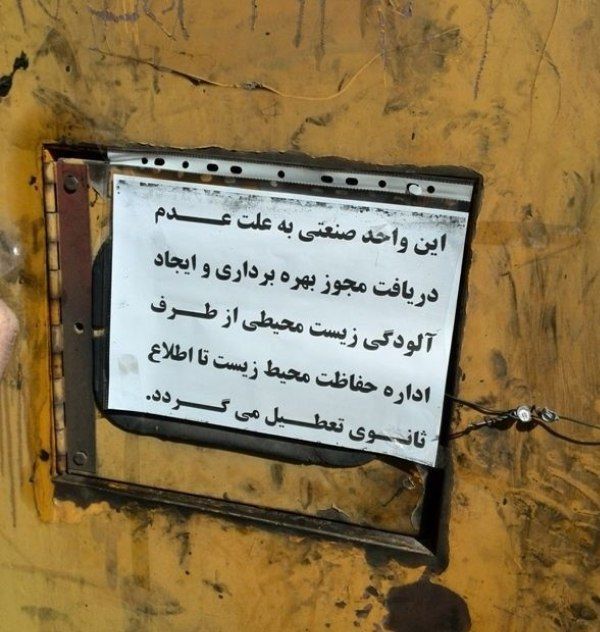 این واحد صنعتی به علت عـــدم
دریافت مجوز بهره برداری و ایجاد
آلودگی زیست محیطی از طـــرف
اداره حفاظت محیط زیست تا اطلاع
ثانـــوی تعطـــیل می گـــردد.